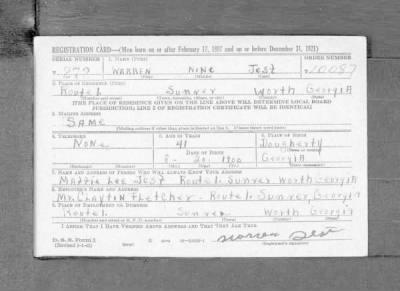 REGISTRATION CARD—(Men born on or after February 17, 1897 and on or before December 31, 1921)
SERIAL NUMBER 1. NAME (Print) ORDER NUMBER
T 272 WARREN NINE JEST 10087
(First) (Middle) (Last)
2. PLACE OF RESIDENCE (Print)
Route 1 Sumner Worth Georgia
(Number and street) (Town, township, village, or city) (County) (State)
[THE PLACE OF RESIDENCE GIVEN ON THE LINE ABOVE WILL DETERMINE LOCAL BOARD
JURISDICTION; LINE 2 OF REGISTRATION CERTIFICATE WILL BE IDENTICAL]
3. MAILING ADDRESS
SAME
[Mailing address if other than place indicated on line 2. If same insert word same]
4. TELEPHONE 5. AGE IN YEARS 6. PLACE OF BIRTH
NONE 41 Dougherty
DATE OF BIRTH (Town or county)
8- 20- 1900 Georgia
(Exchange) (Number) (Mo.) (Day) (Yr.) (State or country)
7. NAME AND ADDRESS OF PERSON WHO WILL ALWAYS KNOW YOUR ADDRESS
Maggie Lee JEST Route 1. Sumner Worth Georgia
8. EMPLOYER'S NAME AND ADDRESS
Mr. Clayton Fletcher - Route 1. Sumner, Georgia
9. PLACE OF EMPLOYMENT OR BUSINESS
Route 1 Sumner Worth Georgia
(Number and street or R. F. D. number) (Town) (County) (State)
I AFFIRM THAT I HAVE VERIFIED ABOVE ANSWERS AND THAT THEY ARE TRUE.
D. S. S. Form 1
(Revised 1-1-42) (over) Warren Jest
(Registrant's signature)